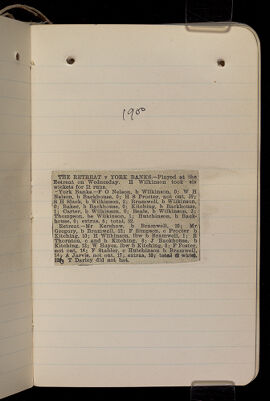 1900
THE RETREAT v YORK BANKS.—Played at the
Retreat on Wednesday. H Wilkinson took six
wickets for 11 runs.
York Banks.—F O Nelson, b Wilkinson, 0; W H
Nelson, b Backhouse, 0; H S Pointer, not out, 19;
S H Slack, b Wilkinson, 2; Bramwell, b Wilkinson,
0; Baker, b Backhouse, 0; Kitching, b Backhouse,
2; Carter, b Wilkinson, 0; Beale, b Wilkinson, 1;
Thompson, b Wilkinson, 1; Hutchinson, b Back-
house, 0; extras, 5; total,
Retreat—Mr Kershaw, b Bramwell, 10; Mr
Gregory, b Bramwell, 13; F Simpson, c Procter b
Kitching, 10; H Wilkinson, lbw b Bramwell, 1; R
Thornton, c and b Kitching, 5; J Backhouse, b
Kitching, 12; W Hayes, lbw b Kitching, 6; F Foster,
not out, 18; F Stabler, c Hutchinson b Bramwell,
14; A Jarvis, not out, 11; extras, 10; total (8 wkts),
T Darley did not bat.